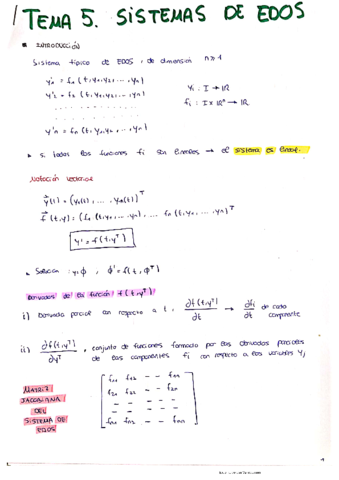 TEMA 5. SISTEMAS DE EDOS
INTRODUCCIÓN
Sistema típico de EDOS, de dimensión n≥1
y'₁ = f₁ (t, y₁, y₂, ..., yₙ)
y'₂ = f₂ (t, y₁, y₂, ..., yₙ) yᵢ : I → ℝ
fᵢ : I x ℝⁿ → ℝ
y'ₙ = fₙ (t, y₁, y₂, ..., yₙ)
Si todas las funciones fi son lineales → el sistema es lineal.
Notación vectorial
y(t) = (y₁(t), ..., yₙ(t))ᵀ
f (t,y) = (f₁ (t, y₁, ..., yₙ), ... fₙ (t, y₁, ..., yₙ))ᵀ
y' = f(t, yᵀ)
Solución : y=ϕ , ϕ' = f(t, ϕᵀ)
Derivadas de la función f(t, yᵀ)
i) Derivada parcial con respecto a t : ∂f(t,yᵀ)/∂t → ∂fi/∂t de cada componente
ii) ∂f(t,yᵀ)/∂yᵀ , conjunto de funciones formado por las derivadas parciales
de las componentes fi con respecto a las variables yj
MATRIZ
JACOBIANA
DEL
SISTEMA DE
EDOS
f₁₁ f₁₂ - - f₁ₙ
f₂₁ f₂₂ - - f₂ₙ
- - - - -
- - - - -
fₙ₁ fₙ₂ - - fₙₙ